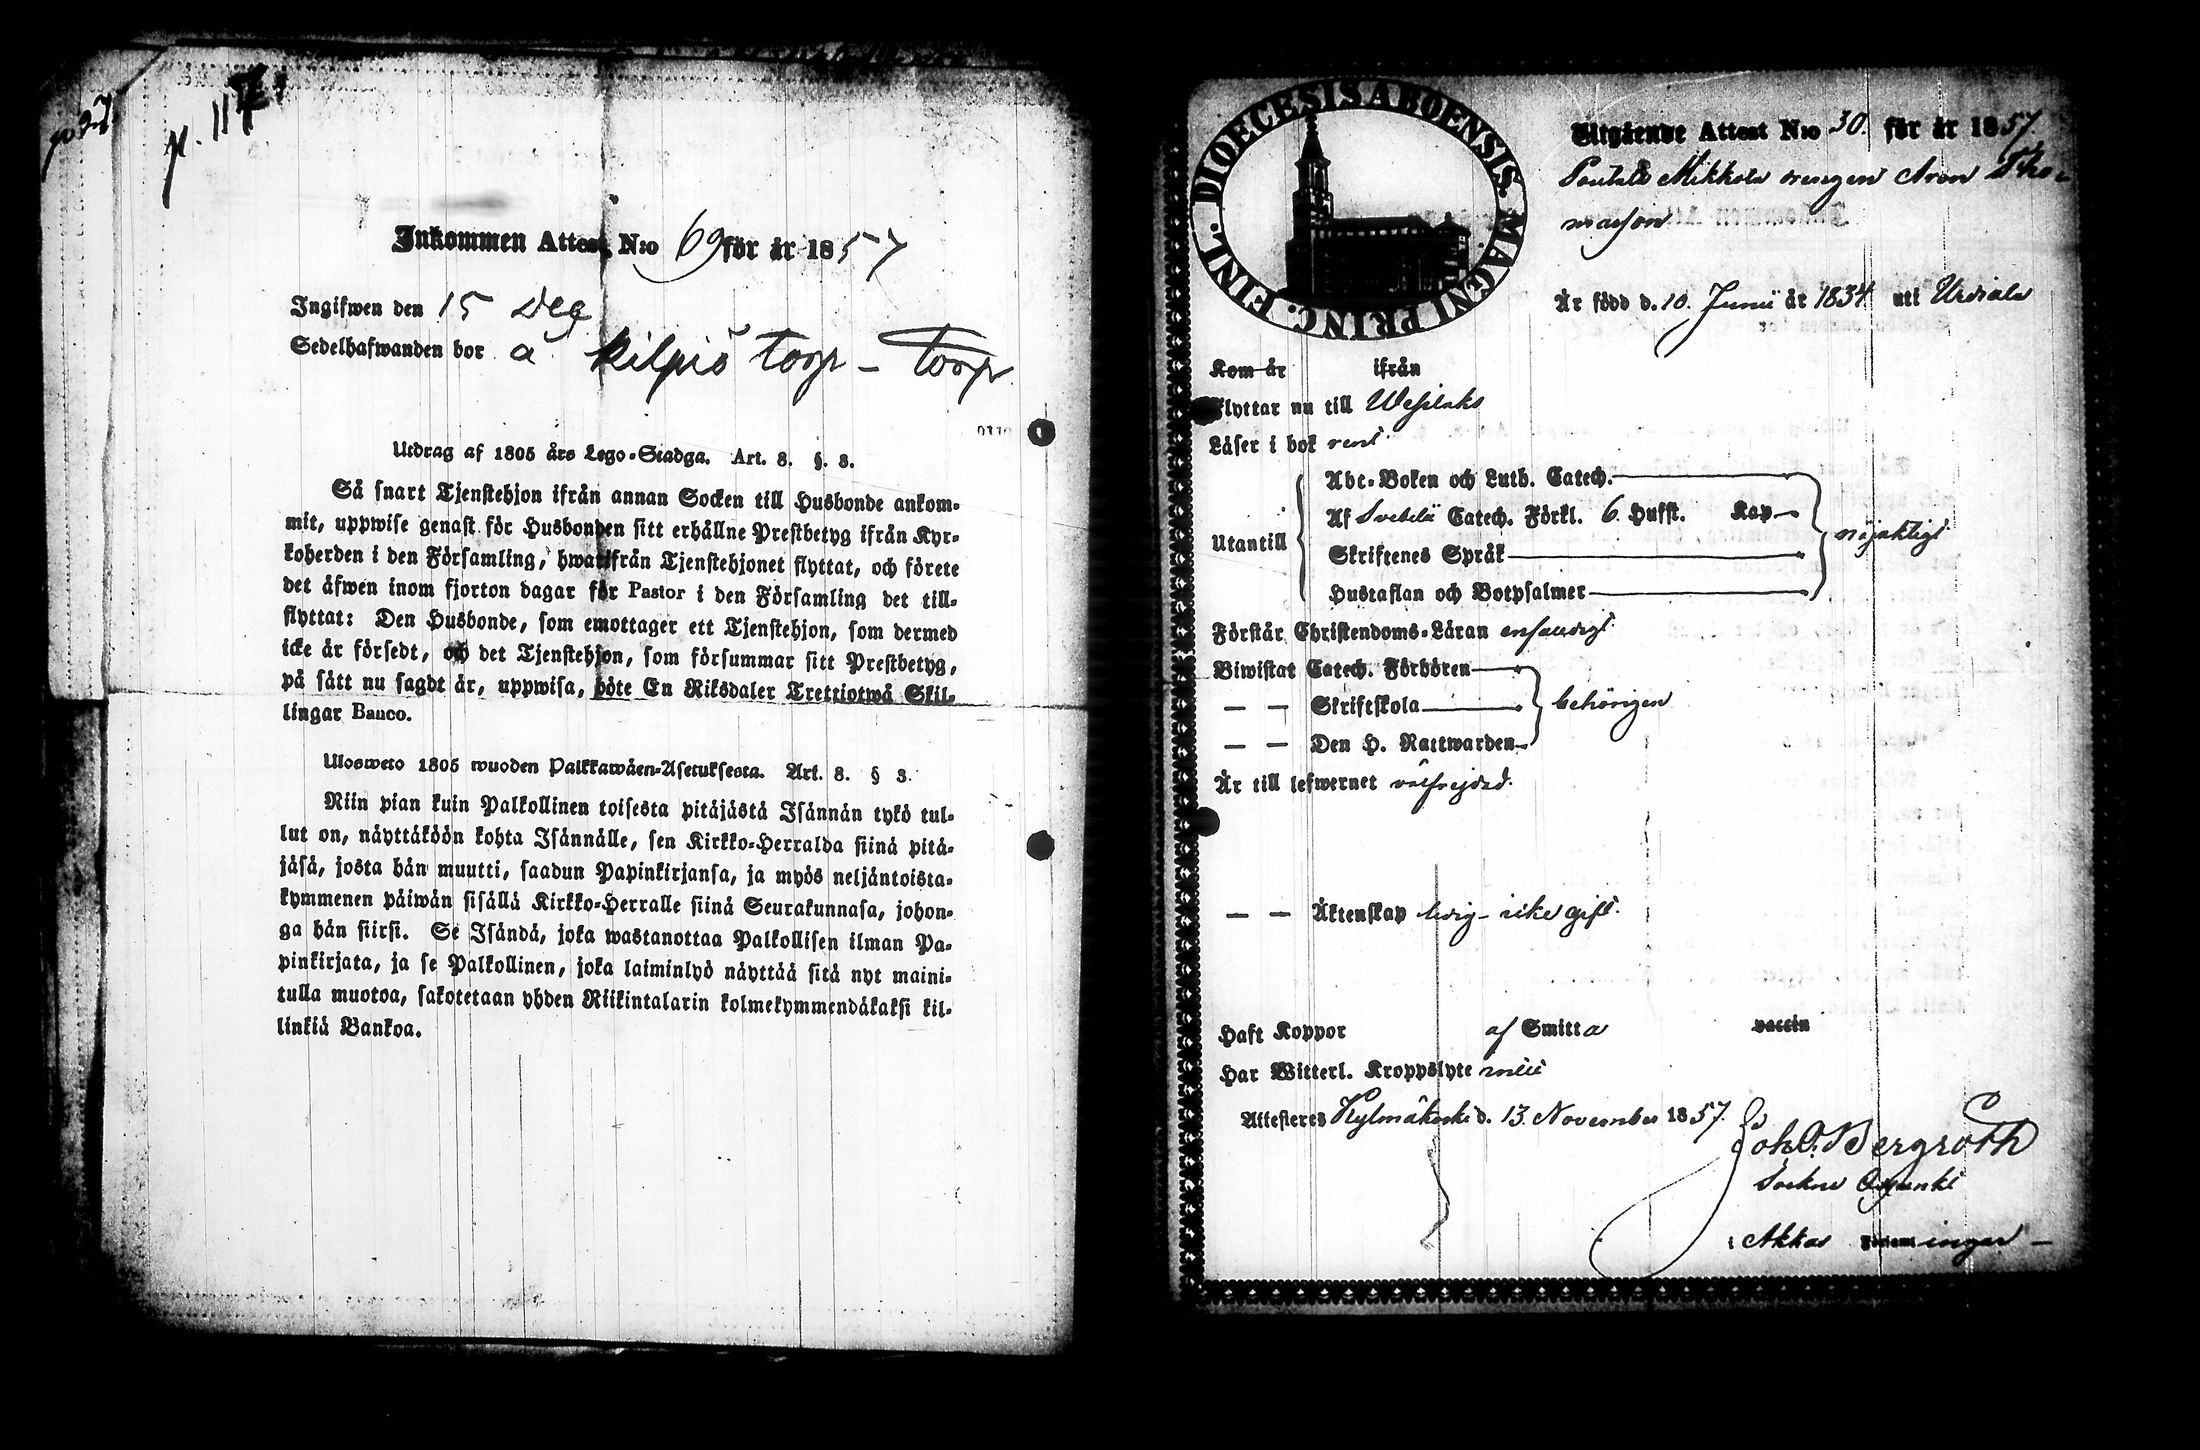 p. 117
Inkommen Attest N:o 69 för år 1857
Ingifwen den 15 Dec
Sedelhafwanden bor å Kilpiö torp – torp
Utdrag af 1805 års Lego-Stadga. Art. 8. §. 3.
Så snart Tjenstehjon ifrån annan Socken till Husbonde ankom-
mit, uppwise genast för Husbonden sitt erhållne Prestbetyg ifrån Kyr-
koherden i den Församling, hwarifrån Tjenstehjonet flyttat, och förete
det äfwen inom fjorton dagar för Pastor i den Församling det till-
flyttat: Den Husbonde, som emottager ett Tjenstehjon, som dermed
icke är försedt, och det Tjenstehjon, som försummar sitt Prestbetyg,
på sätt nu sagdt är, uppwisa, böte En Riksdaler Trettiotwå Skil-
lingar Banco.
Ulosweto 1805 wuoden Palkkawäen-Asetuksesta. Art. 8. § 3.
Niin pian kuin Palkollinen toisesta pitäjästä Isännän tykö tul-
lut on, näyttäköön kohta Isännälle, sen Kirkko-Herralda siinä pitä-
jäsä, josta hän muutti, saadun Papinkirjansa, ja myös neljäntoista-
kymmenen päiwän sisällä Kirkko-Herralle siinä Seurakunnasa, johon-
ga hän siirsi. Se Isändä, joka wastanottaa Palkollisen ilman Pa-
pinkirjata, ja se Palkollinen, joka laiminlyö näyttää sitä nyt maini-
tulla muotoa, sakotetaan yhden Riikintalarin kolmekymmendäkaksi kil-
linkiä Bankoa.
DIOECESIS ABOENSIS. MAGNI PRINC. FINL.
Utgående Attest N:o 30. för år 1857.
Mikkola drengen Aron Tho-
masson
Är född d. 10. Junii år 1834 uti Urdiala
Kom år ifrån
Flyttar nu till Wesilaks
Läser i bok rent.
Utantill
Abc-Boken och Luth. Catech.
Af Svebelii Catech. Förkl. 6. Hufst. Kap
Skriftenes Språk
Hustaflan och Botpsalmer
nöjaktigt
Förstår Christendoms-Läran enfaldigt.
Biwistat Catech. Förhören
— — Skriftskola
— — Den H. Nattwarden
behörigen
Är till lefwernet välfrejdad.
— — Äktenskap ledig – icke gift.
Haft Koppor af Smitta vaccin
Har Witterl. Kroppslyte
Attesteres Kylmäkoski d. 13. November 1857.
Joh. O. Bergroth
Sockne Adjunkt
i Akkas Församlingar –